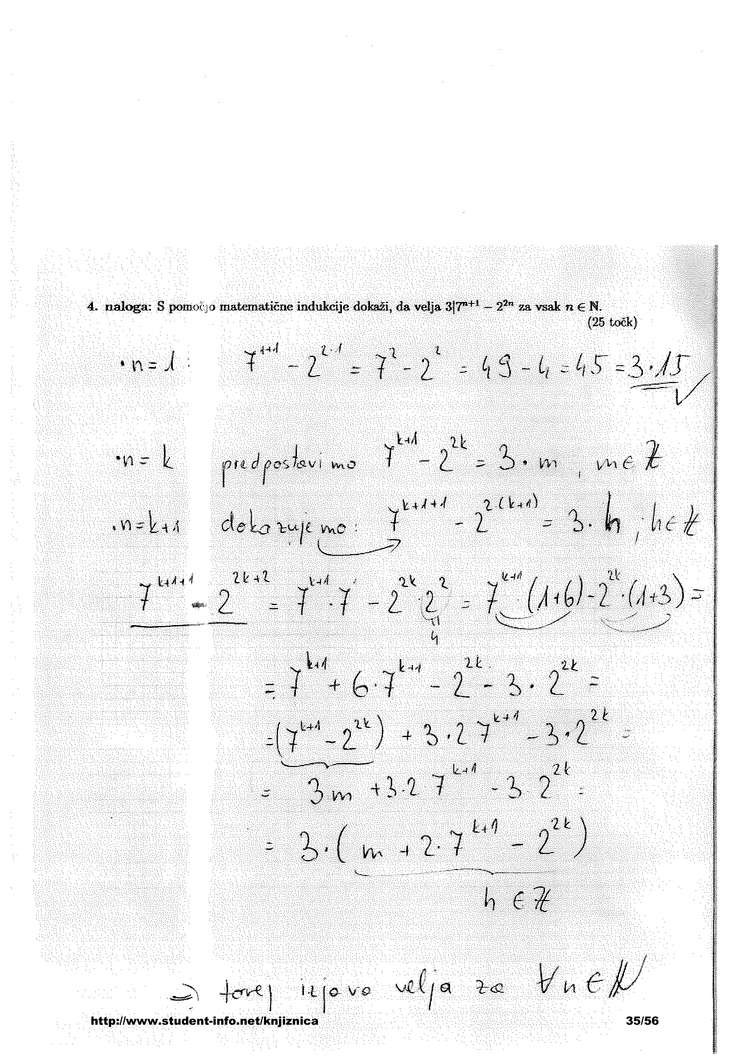 4. naloga: S pomočjo matematične indukcije dokaži, da velja 3|7ⁿ⁺¹ − 2²ⁿ za vsak n ∈ N.
(25 točk)
• n = 1 : 7¹⁺¹ − 2²·¹ = 7² − 2² = 49 − 4 = 45 = 3·15 ✓
• n = k predpostavimo 7ᵏ⁺¹ − 2²ᵏ = 3·m, m ∈ Z
• n = k+1 dokazujemo: 7ᵏ⁺¹⁺¹ − 2²⁽ᵏ⁺¹⁾ = 3·h ; h ∈ Z
7ᵏ⁺¹⁺¹ − 2²ᵏ⁺² = 7ᵏ⁺¹·7 − 2²ᵏ·2² = 7ᵏ⁺¹(1+6) − 2²ᵏ·(1+3) =
4
= 7ᵏ⁺¹ + 6·7ᵏ⁺¹ − 2²ᵏ − 3·2²ᵏ =
= (7ᵏ⁺¹ − 2²ᵏ) + 3·2 7ᵏ⁺¹ − 3·2²ᵏ =
= 3m + 3·2 7ᵏ⁺¹ − 3 2²ᵏ =
= 3·(m + 2·7ᵏ⁺¹ − 2²ᵏ)
h ∈ Z
⇒ torej izjava velja za ∀n ∈ N
http://www.student-info.net/knjiznica 35/56